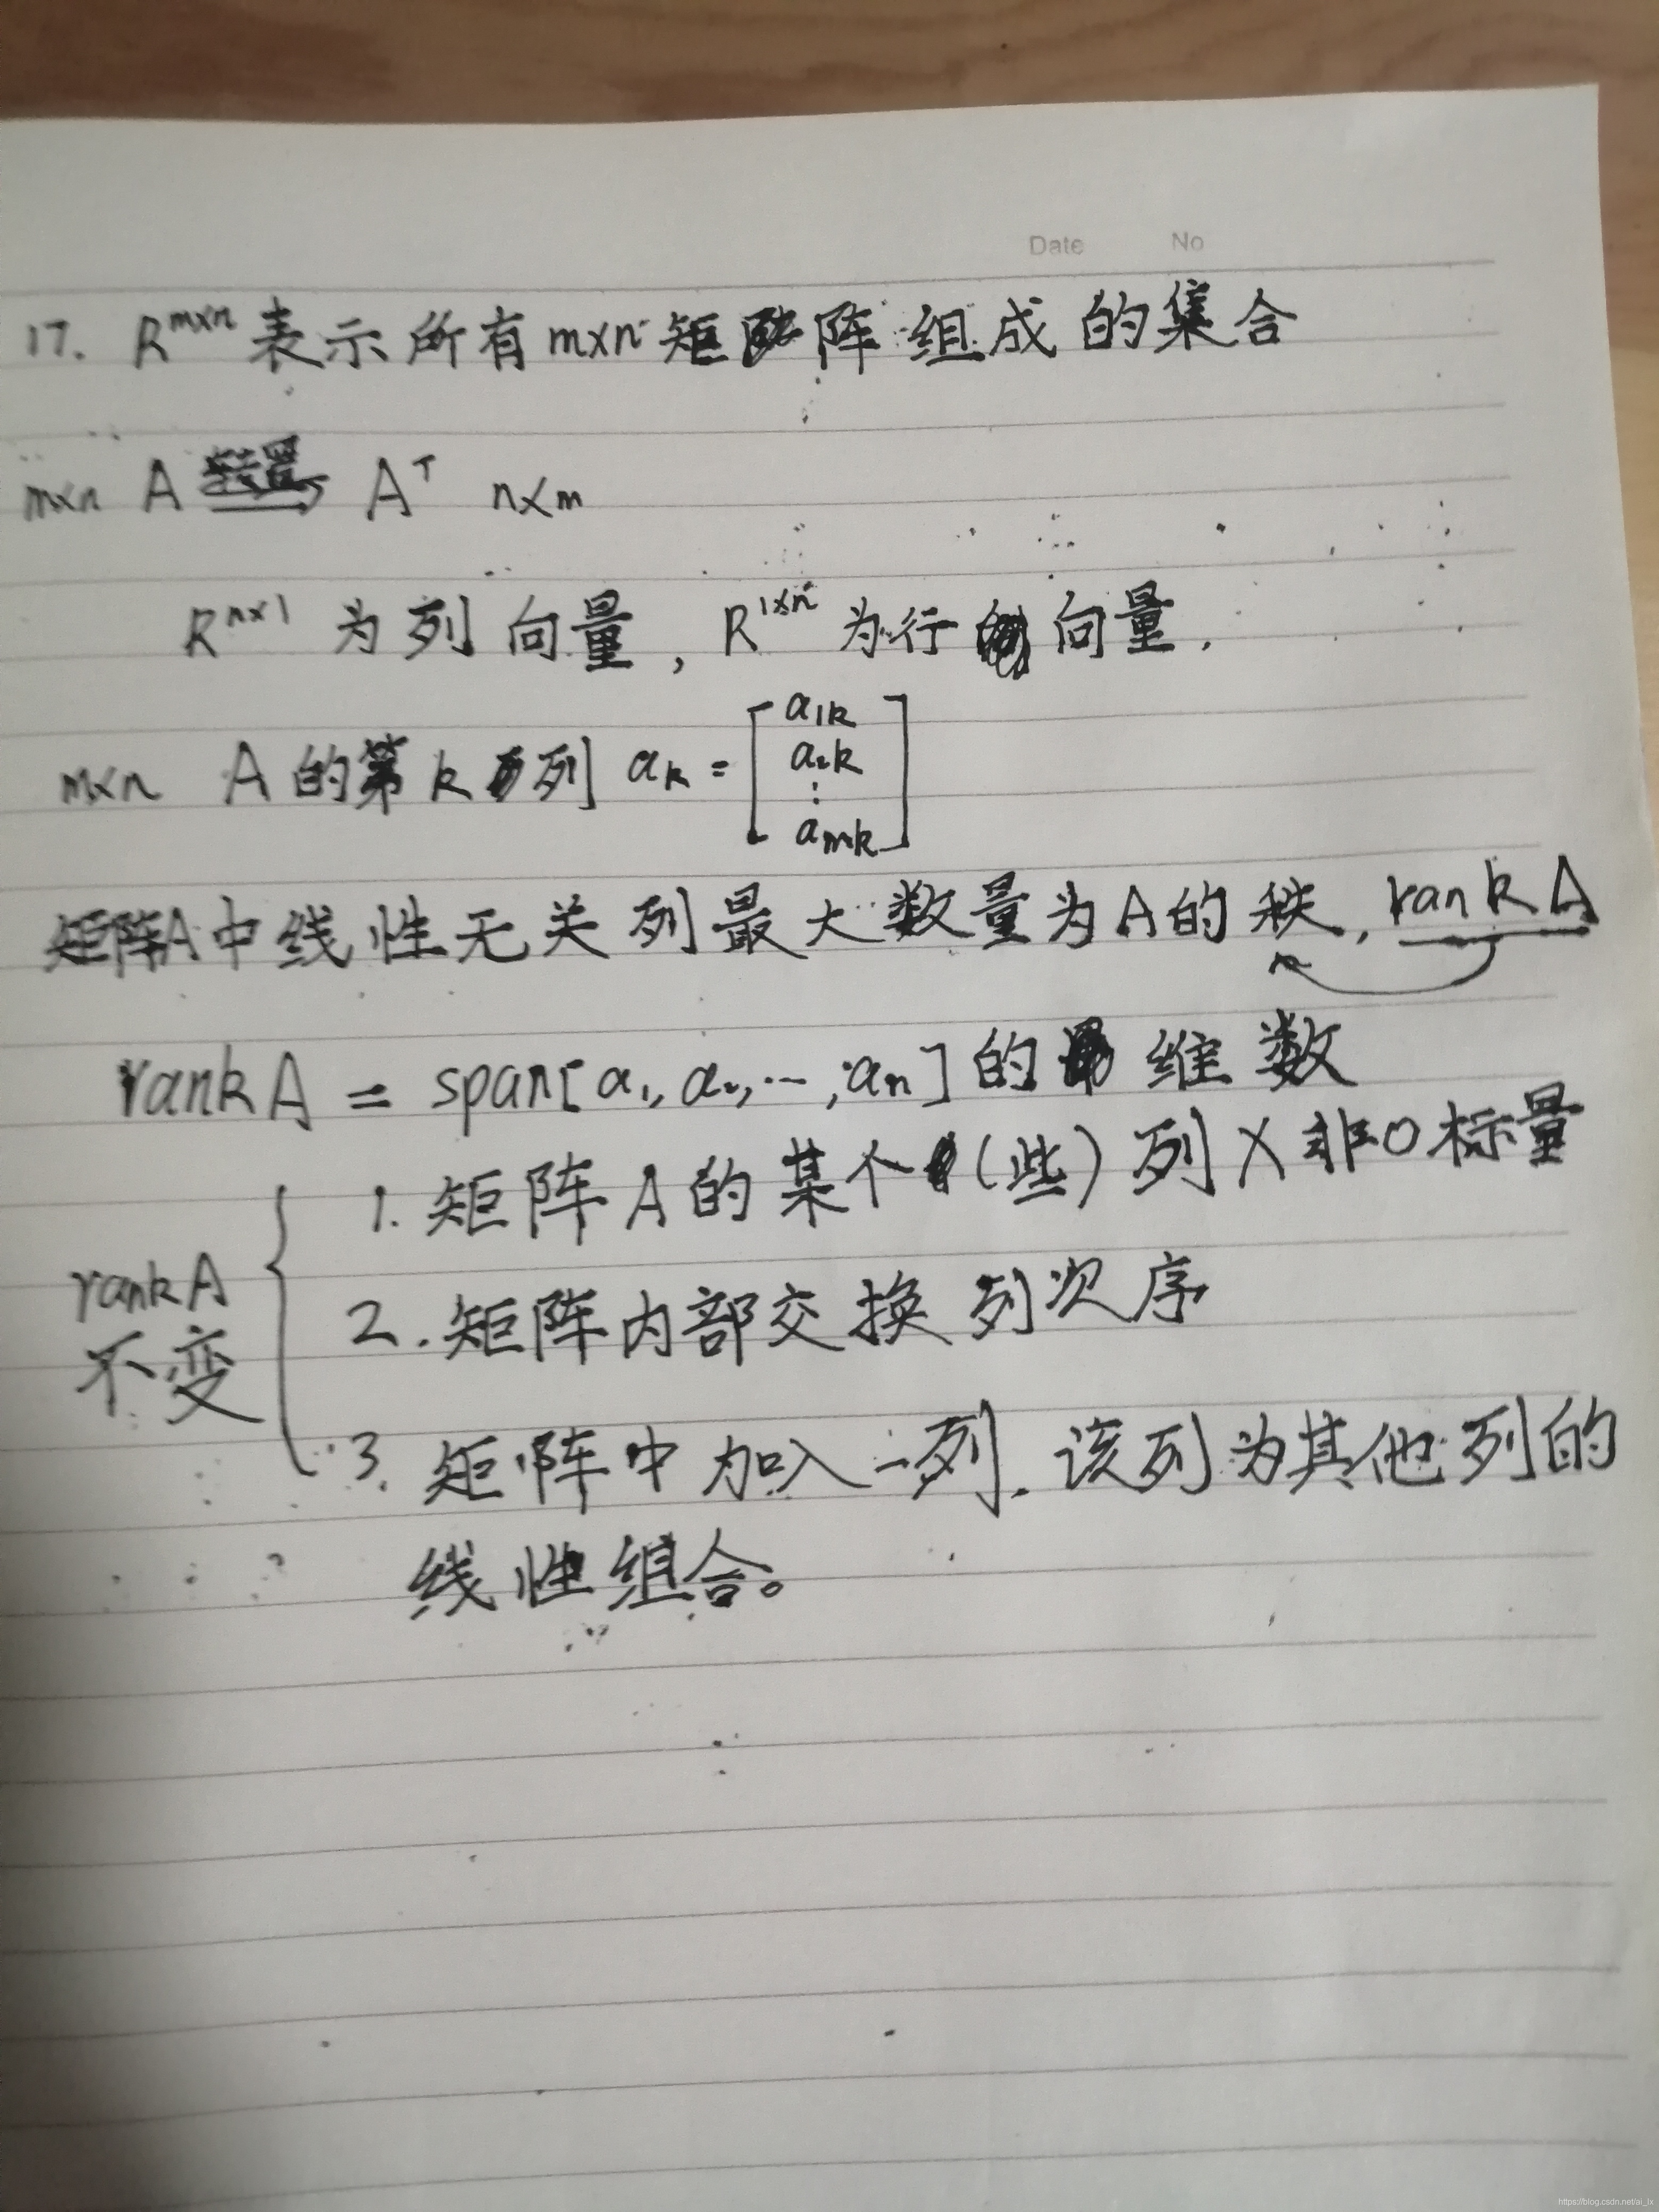 Date No
17. R^{m×n} 表示所有 m×n 矩阵组成的集合
m×n A 转置→ A^T n×m
R^{n×1} 为列向量, R^{1×n} 为行向量.
m×n A的第k列 a_k = [a_{1k} a_{2k} ⋮ a_{mk}]
矩阵A中线性无关列最大数量为A的秩, rank A
rank A = span[a_1, a_2, ..., a_n]的维数
1. 矩阵A的某个(些)列 × 非0标量
rank A
不变
2. 矩阵内部交换列次序
3. 矩阵中加入一列. 该列为其他列的
线性组合。
https://blog.csdn.net/ai_lx